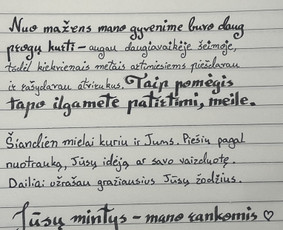 Nuo mažens mano gyvenime buvo daug
progų kurti – augau daugiavaikėje šeimoje,
todėl kiekvienais metais artimiesiems piešdavau
ir rašydavau atvirukus. Taip pomėgis
tapo ilgamete patirtimi, meile.
Šiandien mielai kuriu ir Jums. Piešiu pagal
nuotrauką, Jūsų idėją ar savo vaizduotę.
Dailiai užrašau gražiausius Jūsų žodžius.
Jūsų mintys – mano rankomis ♡